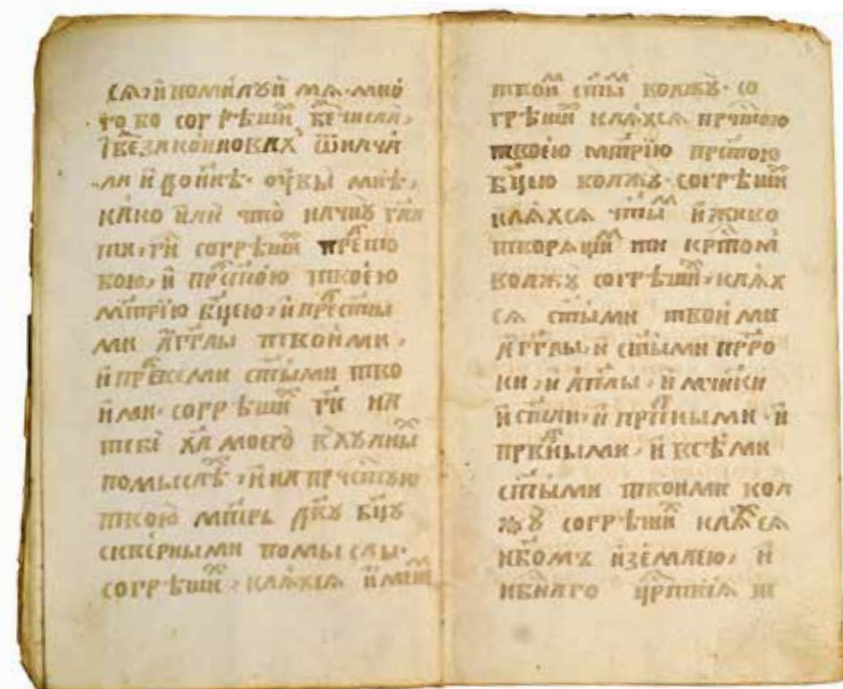 сѧ, и҆ помилꙋи мѧ. мно
го бо согрѣши́х беꙁчисла,
беꙁꙁаконновах ѿнача
ла и҆ дони́нѣ. ꙋ҆вы мнѣ,
ка́ко и҆ли что̀ начнꙋ̀ гл҃а
ти, гд҇и согрѣши́х пред̾ то
бою, и҆ прест҇ою твоє́ю
мт҃рїю бц҃ею, и҆ прест҃ы
ми а҆гг҃лы твои́ми,
и҆ предвсѣми ст҃ыми тво
и҆ми. согрѣши́х гд҇и на
тебѐ хр҇та моего̀ в хꙋлны
помыслѣ, и҆ на прч҇тꙋю
твою̀ мт҃рь дв҃ꙋ бц҃ꙋ
скве́рными помыслы.
согрѣши́х, клѧ́хсѧ и҆менем
твои́м ст҃ым во лжꙋ̀. со
грѣши́х клѧ́хсѧ прч҇тою
твоє́ю мт҃рїю прест҃ою
бц҃ею во лжꙋ̀. согрѣши́х
клѧ́хсѧ чт҇ным и҆ живо
творѧщим ти крт҇ом
во лжꙋ̀ согрѣши́х, клѧ́х
сѧ ст҃ыми твои́ми
а҆гг҃лы, и҆ ст҃ыми прⷪ҇ро
ки, и҆ а҆пⷭ҇лы, и҆ мч҃нки
и҆ ст҃ли, и҆ прпⷣбными. и҆
првⷣными, и҆ всѣ́ми
ст҃ыми твоими во л
жꙋ̀ согрѣши́х клѧ́хсѧ
нб҃омъ и҆ ꙁе́млею, и҆
нб҇наго црⷭ҇твїѧ не